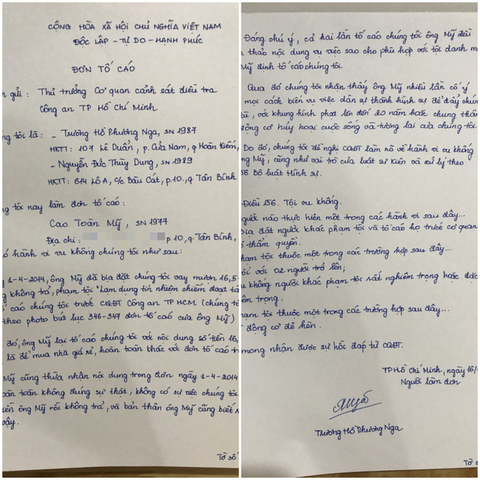 CỘNG HÒA XÃ HỘI CHỦ NGHĨA VIỆT NAM
ĐỘC LẬP - TỰ DO - HẠNH PHÚC
ĐƠN TỐ CÁO
gửi: Thủ trưởng Cơ quan cảnh sát điều tra
Công an TP Hồ Chí Minh
tôi là: - Trương Hồ Phương Nga, SN 1987
HKTT: 107 Lê Duẩn, p. Cửa Nam, q Hoàn Kiếm,
- Nguyễn Đức Thùy Dung, SN 1989
HKTT: 614 Lô A, C/c Bàu Cát, p.10, q Tân Bình
tôi nay làm đơn tố cáo:
Cao Toàn Mỹ, SN 1977
Địa chỉ: p 10, q. Tân Bình,
hành vi vu khống chúng tôi như sau:
1-4-2014, ông Mỹ đã bịa đặt chúng tôi vay mượn 16,5
không trả, phạm tội "Lạm dụng tín nhiệm chiếm đoạt
cáo chúng tôi trước CQĐT Công an TP HCM (chúng
theo photo bút lục 346-347 đơn tố cáo của ông Mỹ)
đó, ông Mỹ lại tố cáo chúng tôi với nội dung số tiền 16,
là để mua nhà giá rẻ, hoàn toàn khác với đơn tố cáo
Mỹ cũng thừa nhận nội dung trong đơn ngày 1-4-2014
toàn không đúng sự thật, không có sự việc chúng tôi
ông Mỹ rồi không trả, và bản thân ông Mỹ cũng biết
vậy.
Tờ số
Đáng chú ý, cả hai lần tố cáo chúng tôi ông Mỹ đều
thảo nội dung vụ việc sao cho phù hợp với tội danh
Mỹ định tố cáo chúng tôi.
Qua đó chúng tôi nhận thấy ông Mỹ nhiều lần cố ý
mọi cách biến vụ việc dân sự thành hình sự để đẩy chúng
tù, với khung hình phạt lên đến 20 năm hoặc chung thân
động cơ hủy hoại cuộc sống và tương lai của chúng tôi
Do đó, chúng tôi đề nghị CQĐT làm rõ về hành vi vu khống
Mỹ, cũng như vai trò của luật sư và xử lý theo
156 Bộ luật Hình sự.
Điều 156. Tội vu khống.
người nào thực hiện một trong các hành vi sau đây...
Bịa đặt người khác phạm tội và tố cáo họ trước cơ quan
thẩm quyền.
Phạm tội thuộc một trong các trường hợp sau đây...
Đối với 02 người trở lên;
vu khống người khác phạm tội rất nghiêm trọng hoặc đặc
trọng.
phạm tội thuộc một trong các trường hợp sau đây...
động cơ đê hèn.
mong nhận được sự hồi đáp từ CQĐT.
TP Hồ Chí Minh, ngày
Người làm đơn
Trương Hồ Phương Nga
Tờ